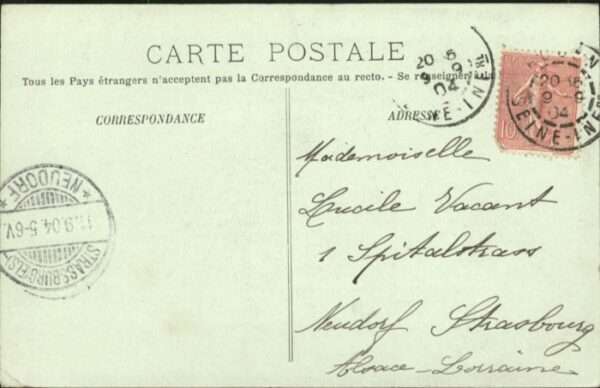 CARTE POSTALE
Tous les Pays étrangers n'acceptent pas la Correspondance au recto. - Se renseigner à la
CORRESPONDANCE
ADRESSE
20 *
9 9
04
SEINE-INFRE
10
20 *
9 9
04
SEINE-INFRE
Mademoiselle
Lucile Vacant
1 Spitalstrass
Neudorf Strasbourg
Alsace-Lorraine
* NEUDORF *
11.9.04.5-6V.
STRASSBURG (ELS)